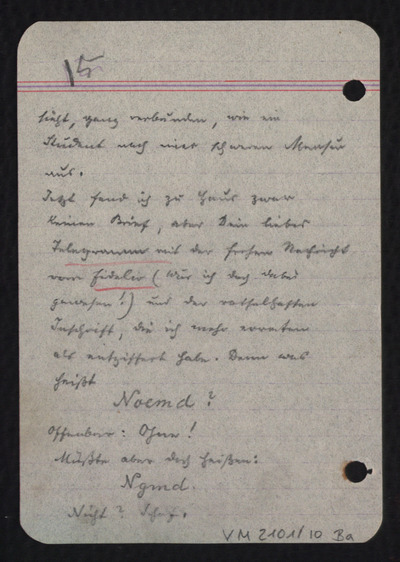 15
sieht, ganz verbunden, wie ein
Student nach einer schweren Mensur
aus.
Jetzt fand ich zu Haus zwar
keinen Brief, aber Dein liebes
Telegramm mit der frohen Nachricht
vom Fidelio (wär ich doch dabei
gewesen!) und der rätselhaften
Inschrift, die ich mehr erraten
als entziffert habe. Denn was
heißt
Noemd?
Offenbar: Ohne!
Müßte aber doch heißen:
Ngmd.
Nicht?
VM 2101/10 Ba